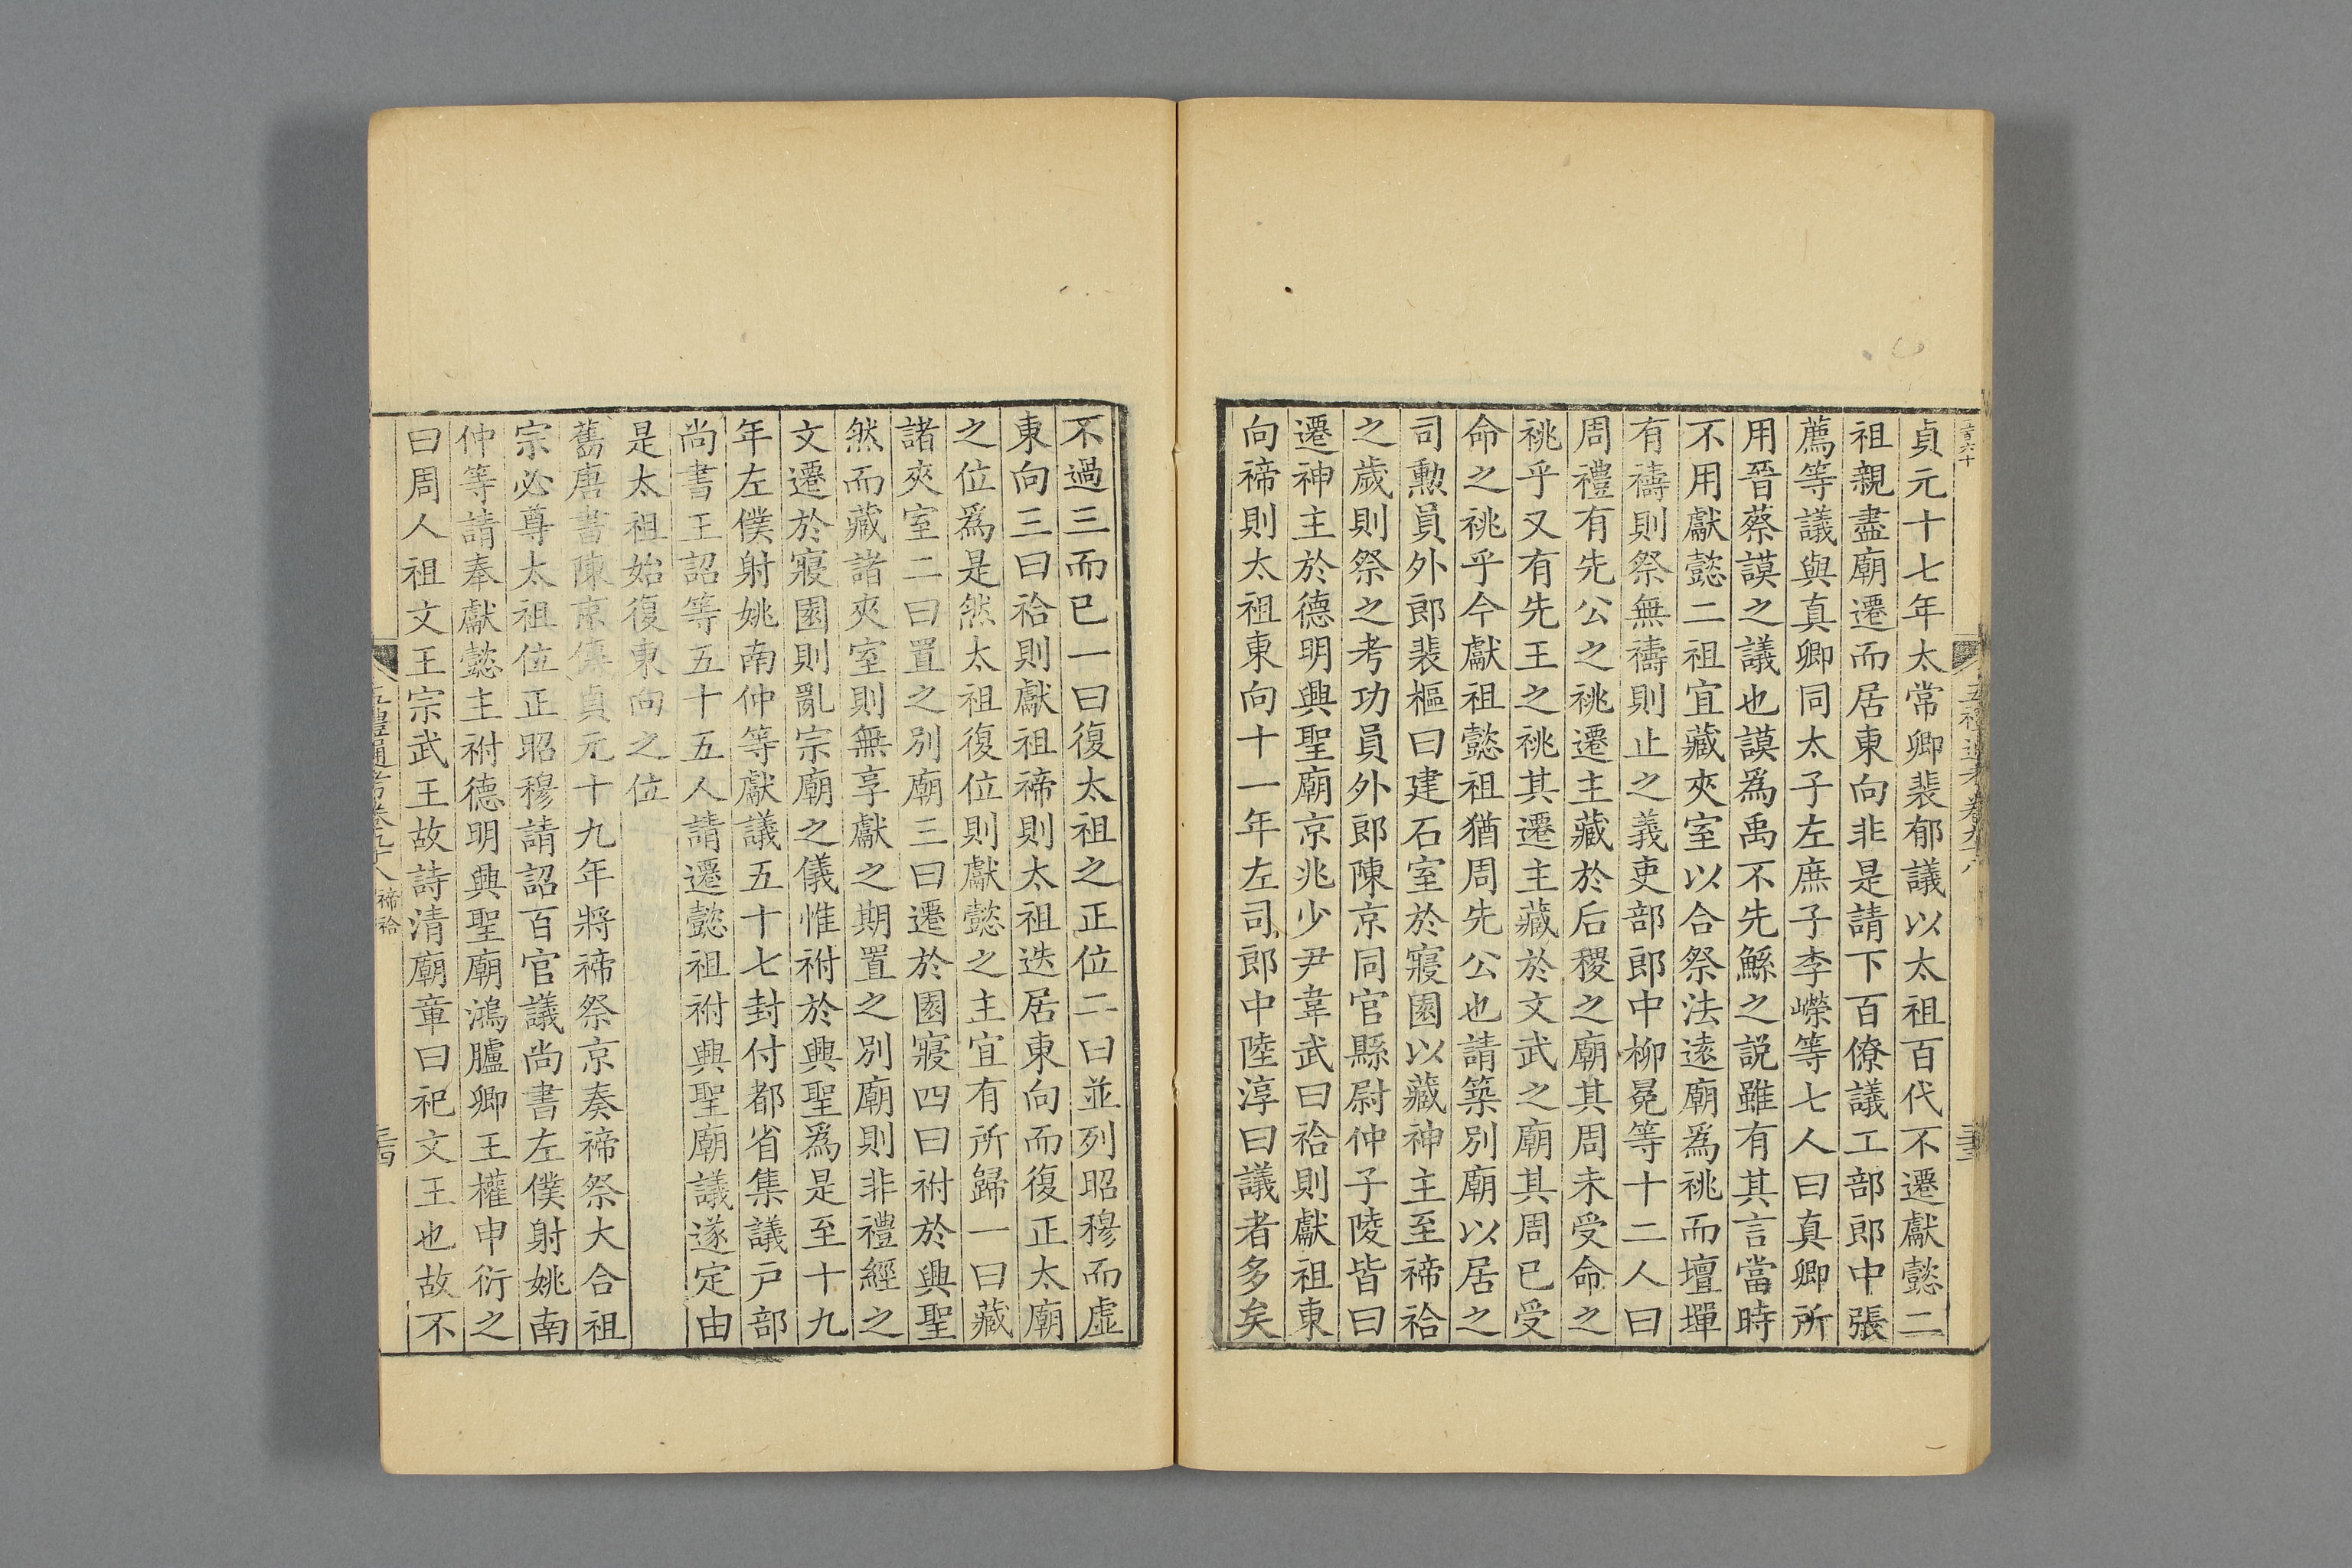 貞元十七年太常卿裴郁議以太祖百代不遷獻懿二
祖親盡廟遷而居東向非是請下百僚議工部郎中張
薦等議與真卿同太子左庶子李嶸等七人曰真卿所
用晉蔡謨之議也謨爲禹不先鯀之説雖有其言當時
不用獻懿二祖宜藏夾室以合祭法遠廟爲祧而壇墠
有禱則祭無禱則止之義吏部郎中柳冕等十二人曰
周禮有先公之祧遷主藏於后稷之廟其周未受命之
祧乎又有先王之祧其遷主藏於文武之廟其周已受
命之祧乎今獻祖懿祖猶周先公也請築別廟以居之
司勲員外郎裴樞曰建石室於寢園以藏神主至禘祫
之歲則祭之考功員外郎陳京同官縣尉仲子陵皆曰
遷神主於德明興聖廟京兆少尹韋武曰祫則獻祖東
向禘則太祖東向十一年左司郎中陸淳曰議者多矣
不過三而已一曰復太祖之正位二曰並列昭穆而虛
東向三曰祫則獻祖禘則太祖迭居東向而復正太廟
之位爲是然太祖復位則獻懿之主宜有所歸一曰藏
諸夾室二曰置之別廟三曰遷於園寢四曰祔於興聖
然而藏諸夾室則無享獻之期置之別廟則非禮經之
文遷於寢園則亂宗廟之儀惟祔於興聖爲是至十九
年左僕射姚南仲等獻議五十七封付都省集議戸部
尚書王詔等五十五人請遷懿祖祔興聖廟議遂定由
是太祖始復東向之位
舊唐書陳京傳貞元十九年將禘祭京奏禘祭大合祖
宗必尊太祖位正昭穆請詔百官議尚書左僕射姚南
仲等請奉獻懿主祔德明興聖廟鴻臚卿王權申衍之
曰周人祖文王宗武王故詩清廟章曰祀文王也故不
五禮通考卷九十八 禘祫